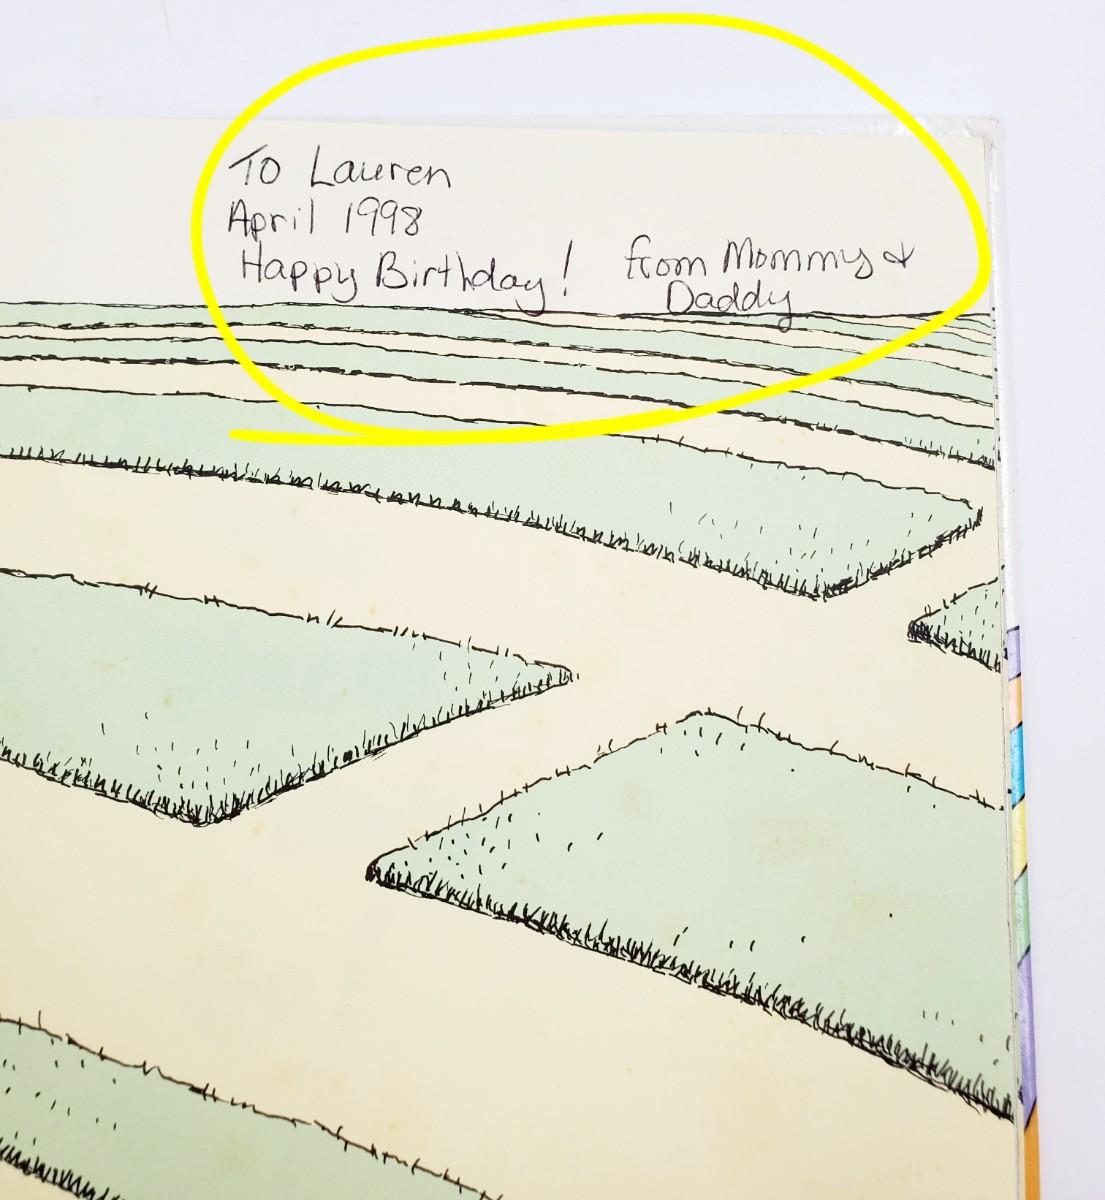 To Lauren
April 1998
Happy Birthday! from Mommy &
Daddy